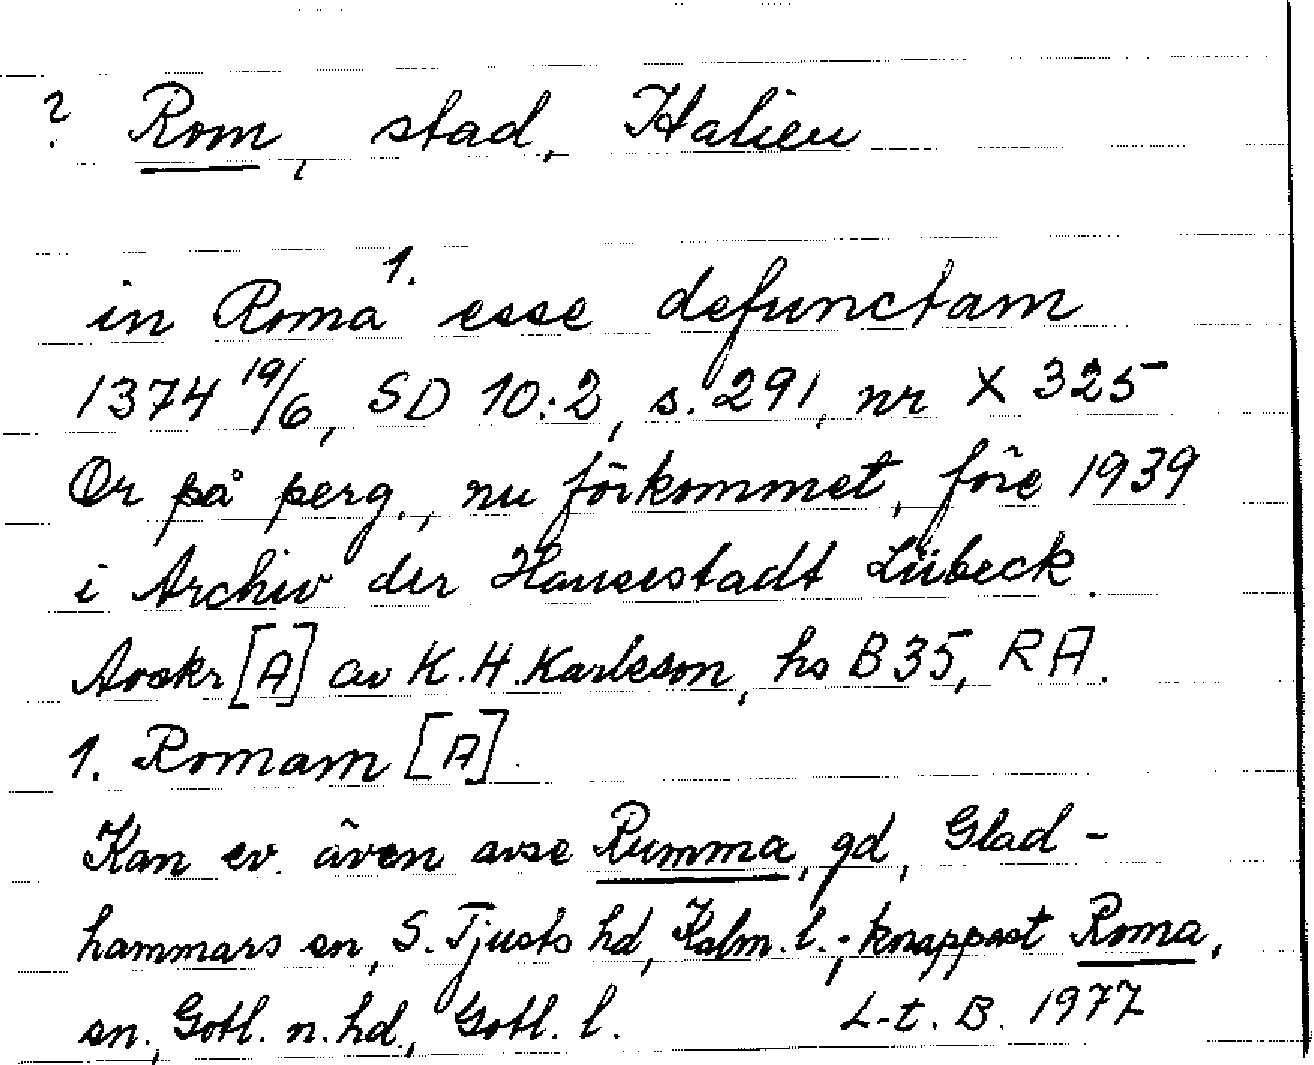 ? Rom, stad, Italien
in Roma¹· esse defunctam
1374 19/6, SD 10:2, s. 291, nr X 325
Or på perg., nu förkommet, före 1939
i Archiv der Hansestadt Lübeck.
Avskr [A] av K.H. Karlsson, hs B 35, RA.
1. Romam [A].
Kan ev. även avse Rumma, gd, Glad-
hammars sn, S. Tjusts hd, Kalm. l.; knappast Roma,
sn., Gotl. n. hd., Gotl. l. L-t. B. 1977